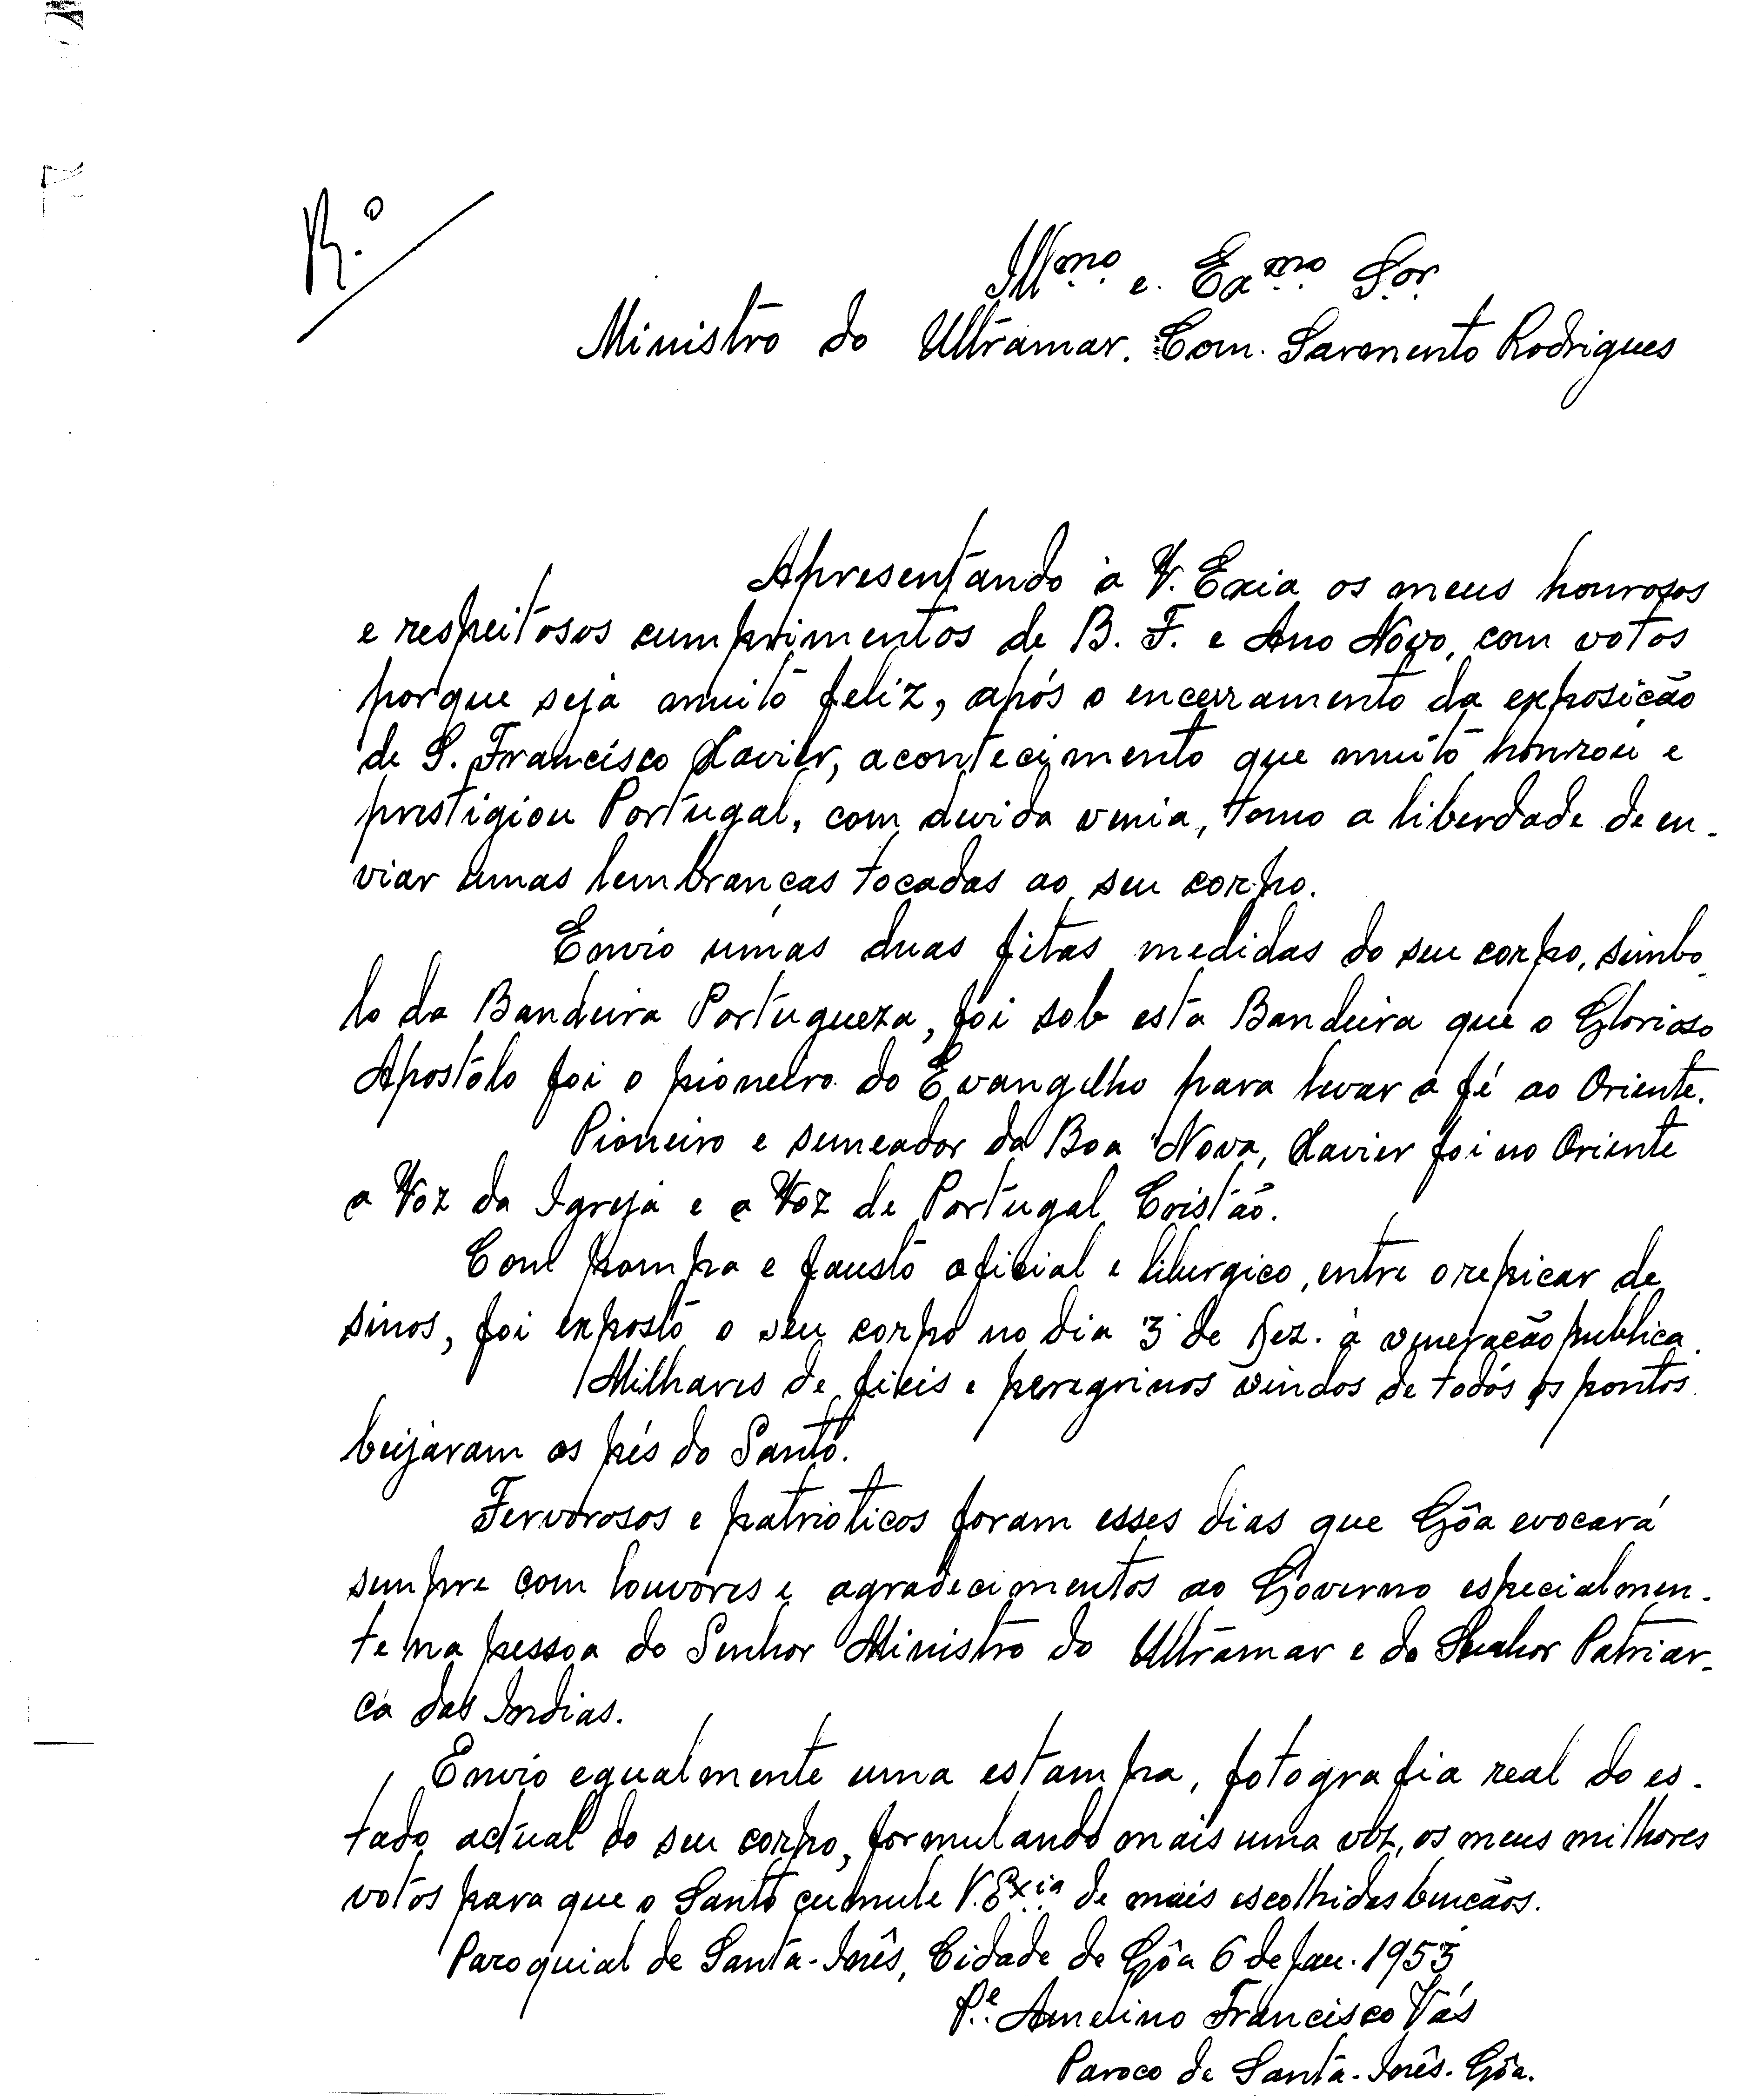 R.º
Illmo e. Exmo Sor.
Ministro do Ultramar. Com. Sarmento Rodrigues
Apresentando a V. Exia os meus honrosos
e respeitosos cumprimentos de B. F. e Ano Novo, com votos
porque seja muito feliz, após o encerramento da exposição
de S. Francisco Xavier, acontecimento que muito honrou e
prestigiou Portugal, com devida venia, tomo a liberdade de en-
viar umas lembranças tocadas ao seu corpo.
Envio umas duas fitas medidas do seu corpo, simbo-
lo da Bandeira Portugueza, foi sob esta Bandeira que o Glorioso
Apostolo foi o pioneiro do Evangelho para levar a fé ao Oriente.
Pioneiro e semeador da Boa Nova, Xavier foi no Oriente
a Voz da Igreja e a Voz de Portugal Cristão.
Com pompa e fausto oficial e liturgico, entre o repicar de
sinos, foi exposto o seu corpo no dia 3 de Dez. á veneração publica.
Milhares de fieis e peregrinos vindos de todos os pontos
beijaram os pés do Santo.
Fervorosos e patrioticos foram esses dias que Gôa evocará
sempre com louvores e agradecimentos ao Governo especialmen-
te na pessoa do Senhor Ministro do Ultramar e do Senhor Patriar-
ca das Indias.
Envio egualmente uma estampa, fotografia real do es-
tado actual do seu corpo, formulando mais uma vez, os meus milhores
votos para que o Santo cumule V. Exia de mais escolhidas bençãos.
Paroquial de Santa-Inês, Cidade de Gôa 6 de Jan. 1953
Pe. Amelino Francisco Vás
Paroco de Santa-Inês. Gôa.